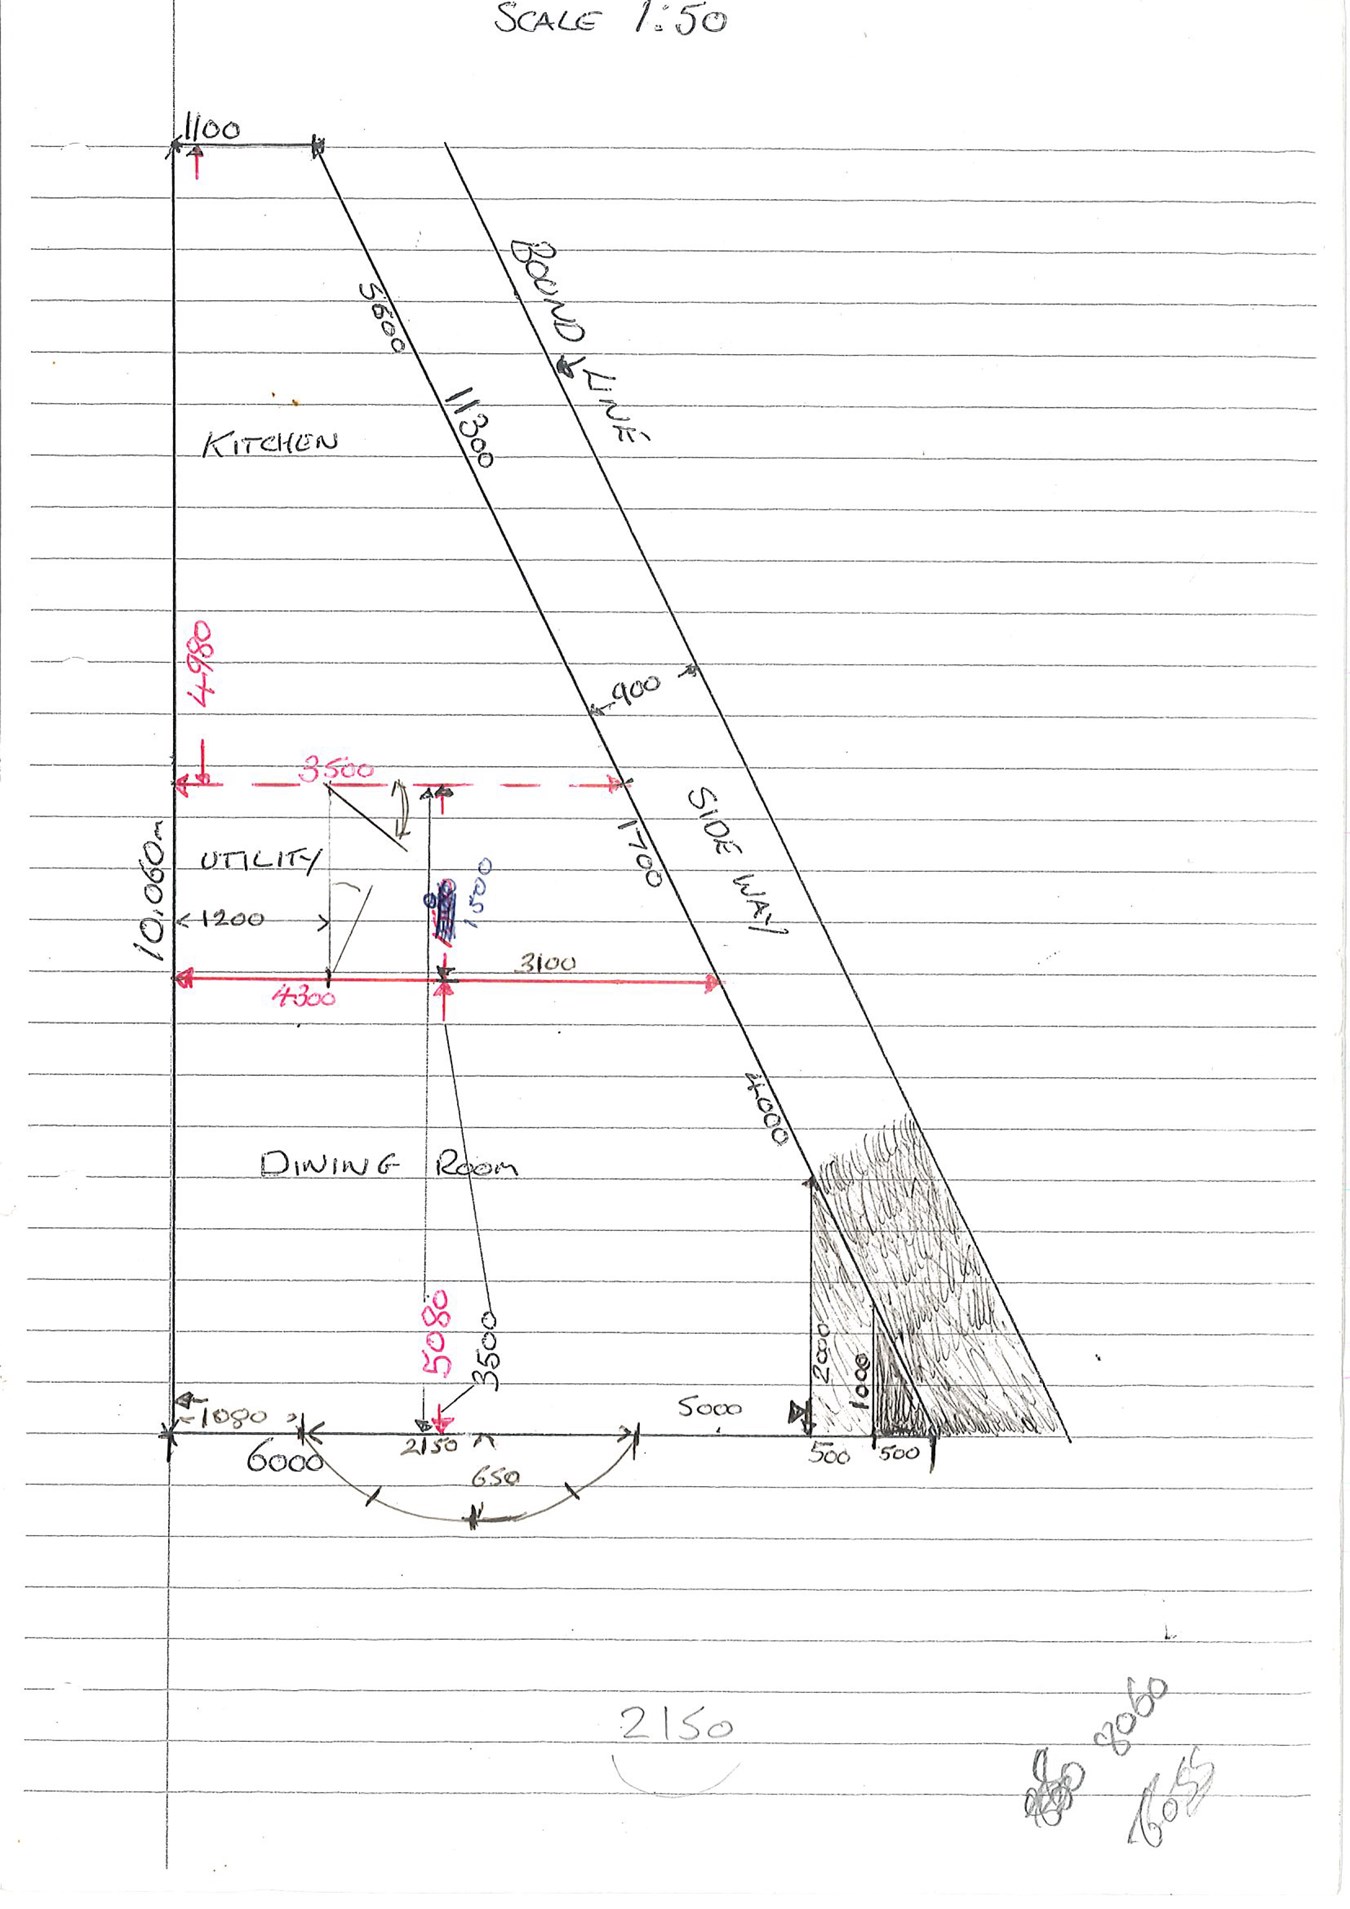 SCALE 1:50
1100
BOUND LINE
5600
11300
KITCHEN
4980
900
3500
SIDE WAY
1700
UTILITY
10,060m
1500
1200
3100
4300
4000
DINING ROOM
5080
3500
2000
1000
1080
5000
6000
2150
650
500
500
2150
8060